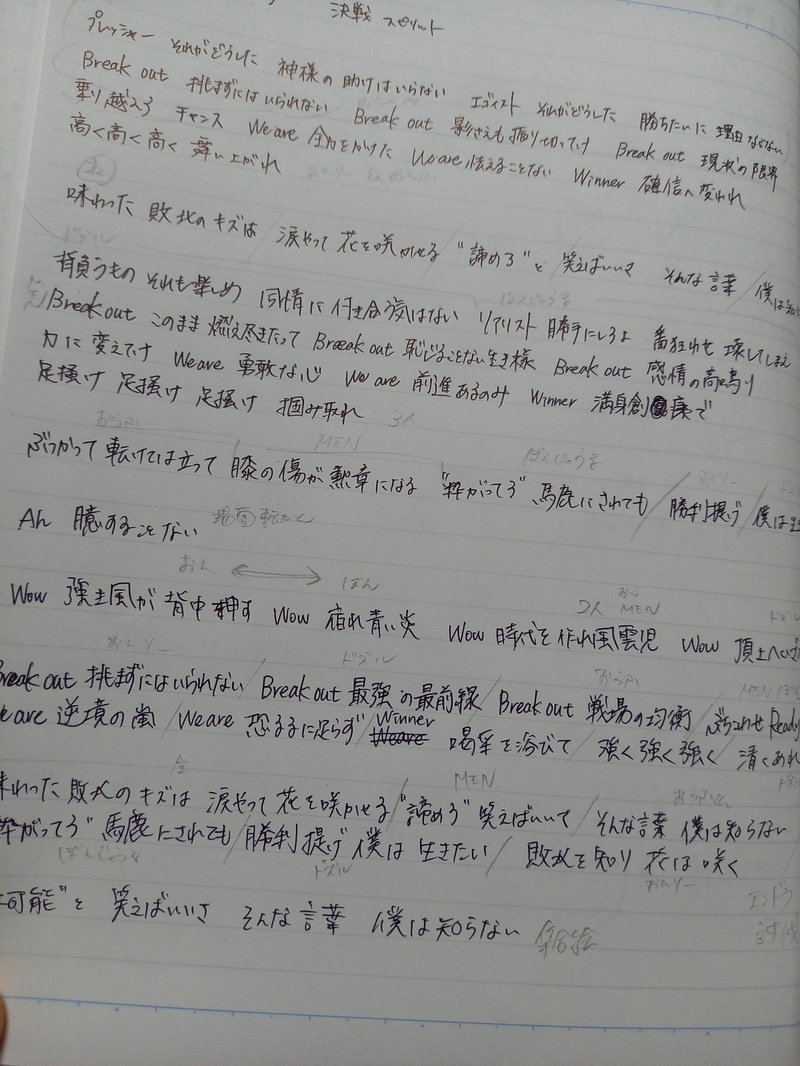 決戦 スピリット
プレッシャー それがどうした 神様の助けはいらない エゴイスト それがどうした 勝ちたいに理由などない
Break out 挑まずにはいられない Break out 影さえも振り切ってけ Break out 現状の限界
乗り越えろ チャンス We are 全力をかけた We are 怯えることない Winner 確信へ変われ
高く高く高く 舞い上がれ
味わった 敗北のキズは 涙やって 花を咲かせる "諦めろ"と 笑えばいいさ そんな言葉 僕は知ら
ドズル
背負うもの それも楽しめ 同情に付き合う気はない リアリスト 勝手にしろよ 番狂わせ 壊してしまえ
Break out このまま燃え尽きたって Break out 恥じることない生き様 Break out 感情の高鳴り
力に変えてけ We are 勇敢な心 We are 前進あるのみ Winner 満身創痍で
足掻け 足掻け 足掻け 掴み取れ
おらふ MEN 3人 ぼんじゅうる
ぶつかって 転けては立って 膝の傷が 勲章になる "粋がってろ" 馬鹿にされても 勝利提げ 僕は
Ah 臆することない 場面転かん
おん ⟷ ぼん 2人 おら MEN
Wow 強き風が 背中押す Wow 宿れ青い炎 Wow 時代を作れ風雲児 Wow 頂上へ
おんりー ドズル おらふ MEN
Break out 挑まずにはいられない Break out 最強の最前線 Break out 戦場の均衡 ぶちこわせ Ready
We are 逆境の嵐 We are 恐るるに足らず Winner 喝采を浴びて 強く強く強く 清くあれ
全 MEN おらふくん
味わった 敗北のキズは 涙やって 花を咲かせる "諦めろ" 笑えばいいて そんな言葉 僕は知らない
粋がってろ" 馬鹿にされても 勝利提げ 僕は 生きたい 敗北を知り 花は咲く
ぼんじゅうる ドズル おんりー
可能"と 笑えばいいさ そんな言葉 僕は知らない エンドラ